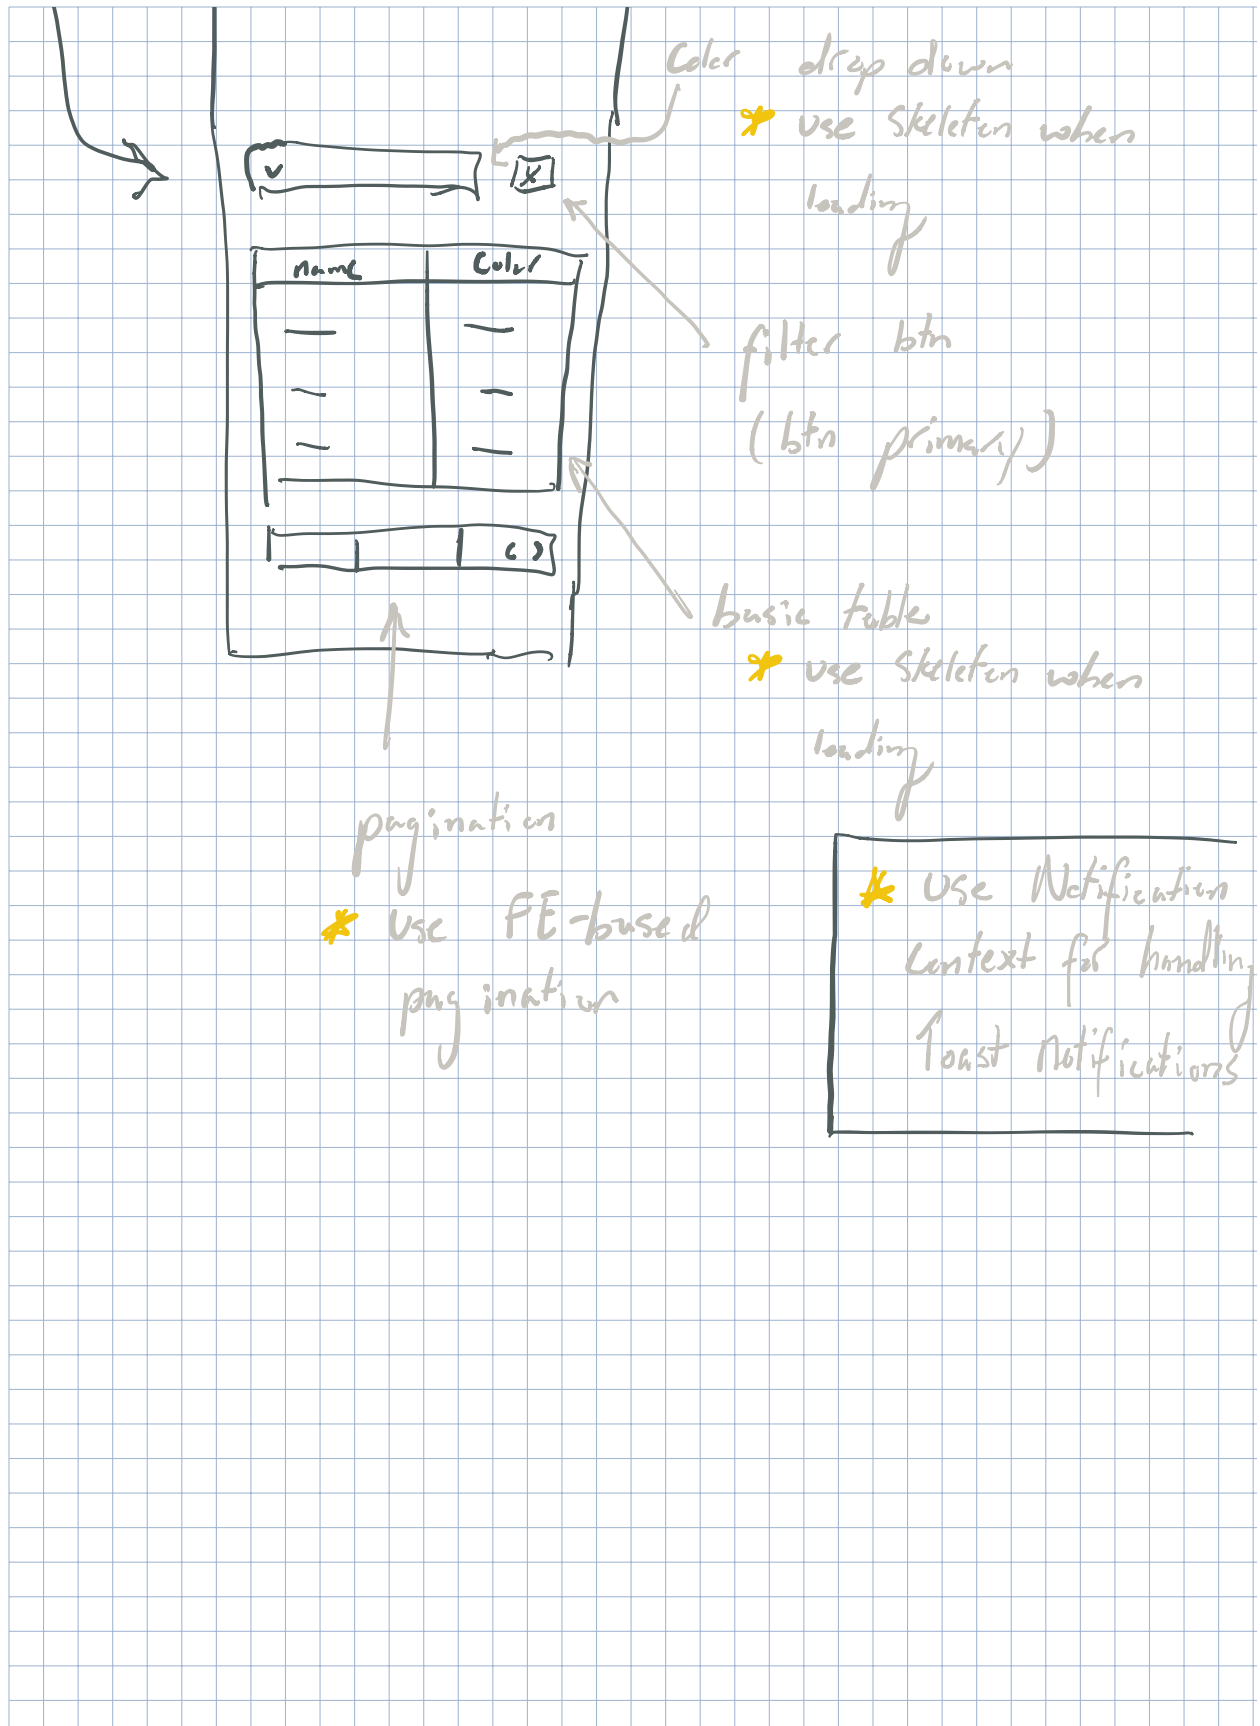 Color drop down
* use skeleton when
loading
name Color
filter btn
(btn primary)
basic table
* use skeleton when
loading
pagination
* Use FE-based
pagination
* Use Notification
Context for handling
Toast Notifications